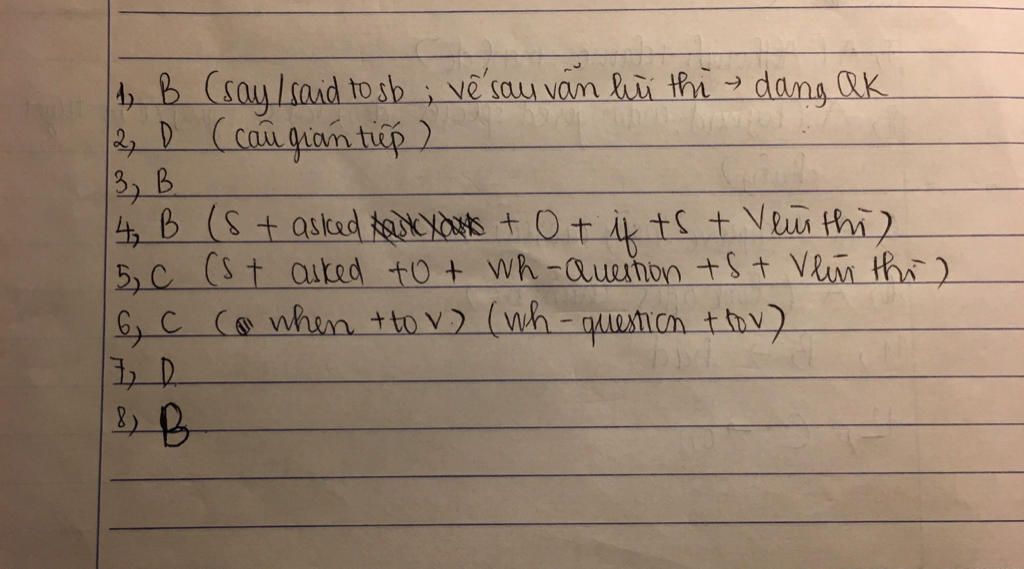 1, B (say/said to sb ; vế sau vẫn lùi thì → dạng QK
2, D (câu gián tiếp)
3, B
4, B (S + asked + O + if + S + V lùi thì)
5, C (S + asked + O + Wh-Question + S + V lùi thì)
6, C (when + to V) (Wh-question + to V)
7, D
8, B